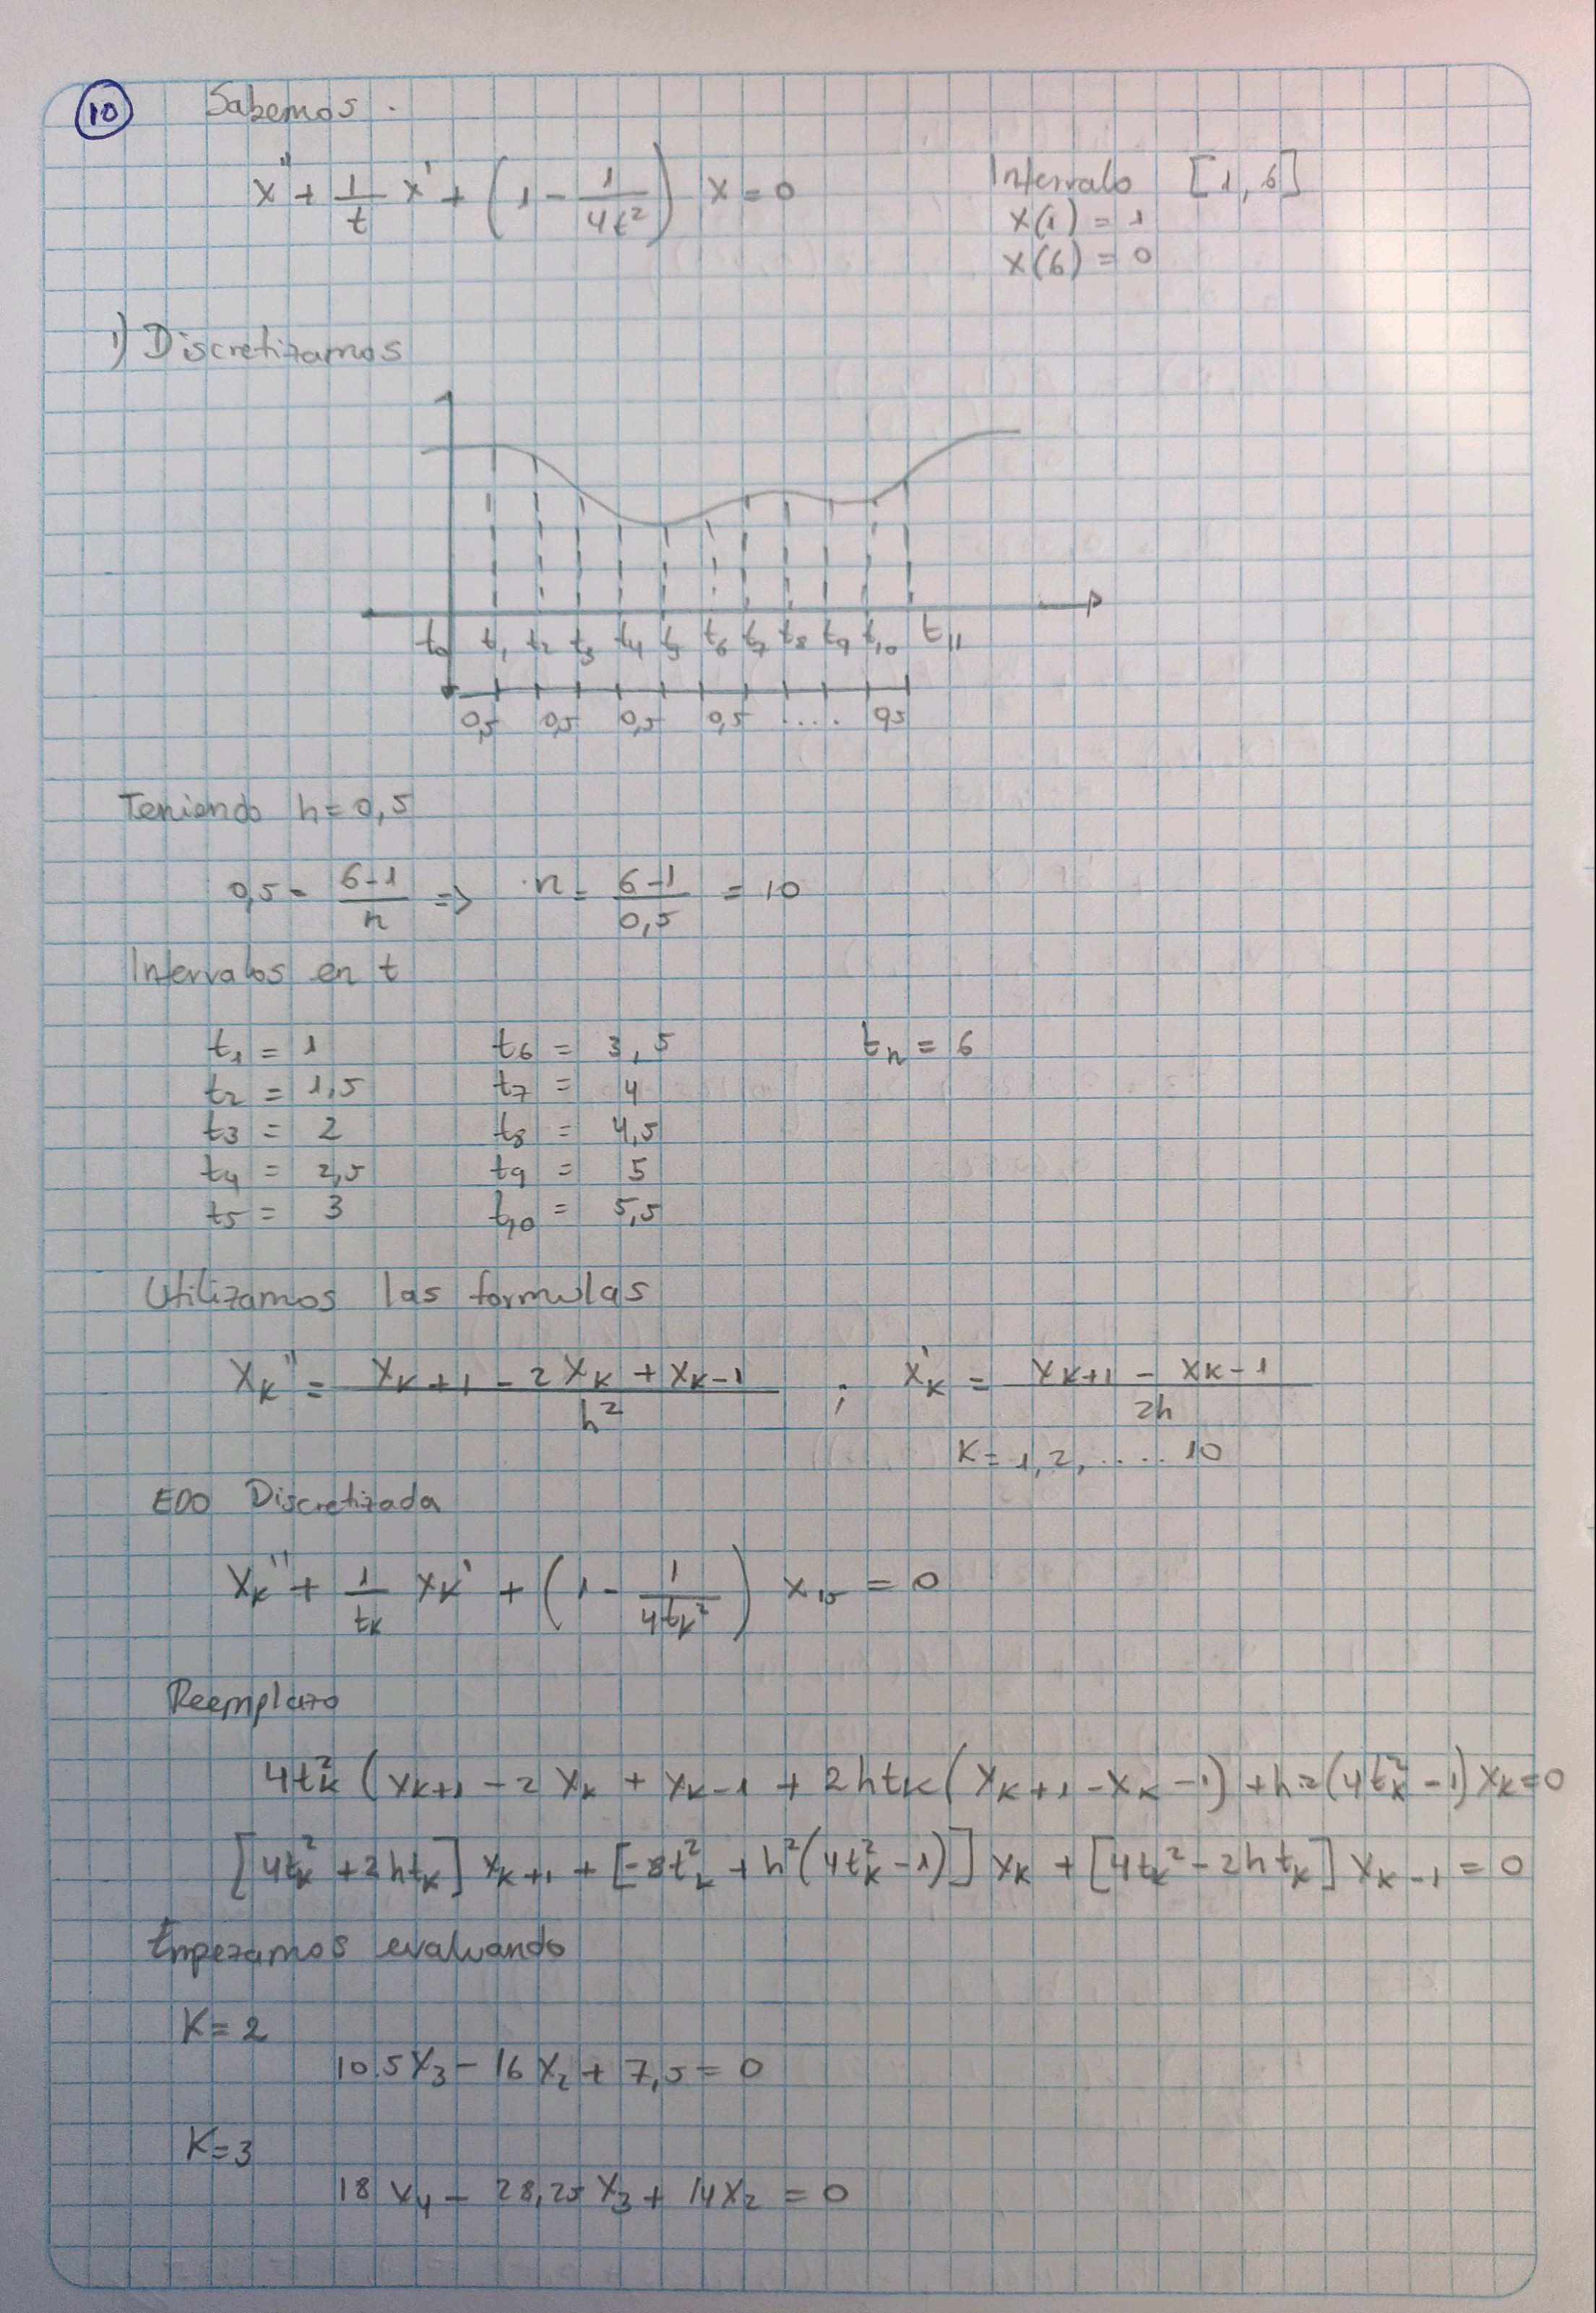 10 Sabemos.
x'' + 1/t x' + (1 - 1/4t²) x = 0
Intervalo [1,6]
x(1) = 1
x(6) = 0
1) Discretizamos
t₀ t₁ t₂ t₃ t₄ t₅ t₆ t₇ t₈ t₉ t₁₀ t₁₁
0,5 0,5 0,5 0,5 .... 0,5
Teniendo h=0,5
0,5 = 6-1/n => n = 6-1/0,5 = 10
Intervalos en t
t₁ = 1 t₆ = 3,5 tₙ = 6
t₂ = 1,5 t₇ = 4
t₃ = 2 t₈ = 4,5
t₄ = 2,5 t₉ = 5
t₅ = 3 t₁₀ = 5,5
Utilizamos las formulas
Xₖ'' = Xₖ₊₁ - 2Xₖ + Xₖ₋₁ / h² ; X'ₖ = Xₖ₊₁ - Xₖ₋₁ / 2h
K = 1,2, .... 10
EDO Discretizada
Xₖ'' + 1/tₖ Xₖ' + (1 - 1/4tₖ²) X₁₅ = 0
Reemplazo
4tₖ² (Xₖ₊₁ - 2Xₖ + Xₖ₋₁ + 2htₖ(Xₖ₊₁ - Xₖ - 1) + h2(4tₖ² - 1)Xₖ = 0
[4tₖ² + 2htₖ] Xₖ₊₁ + [-8tₖ² + h²(4tₖ² - 1)] Xₖ + [4tₖ² - 2htₖ] Xₖ₋₁ = 0
Empezamos evaluando
K=2
10.5X₃ - 16X₂ + 7,5 = 0
K=3
18X₄ - 28,25X₃ + 14X₂ = 0